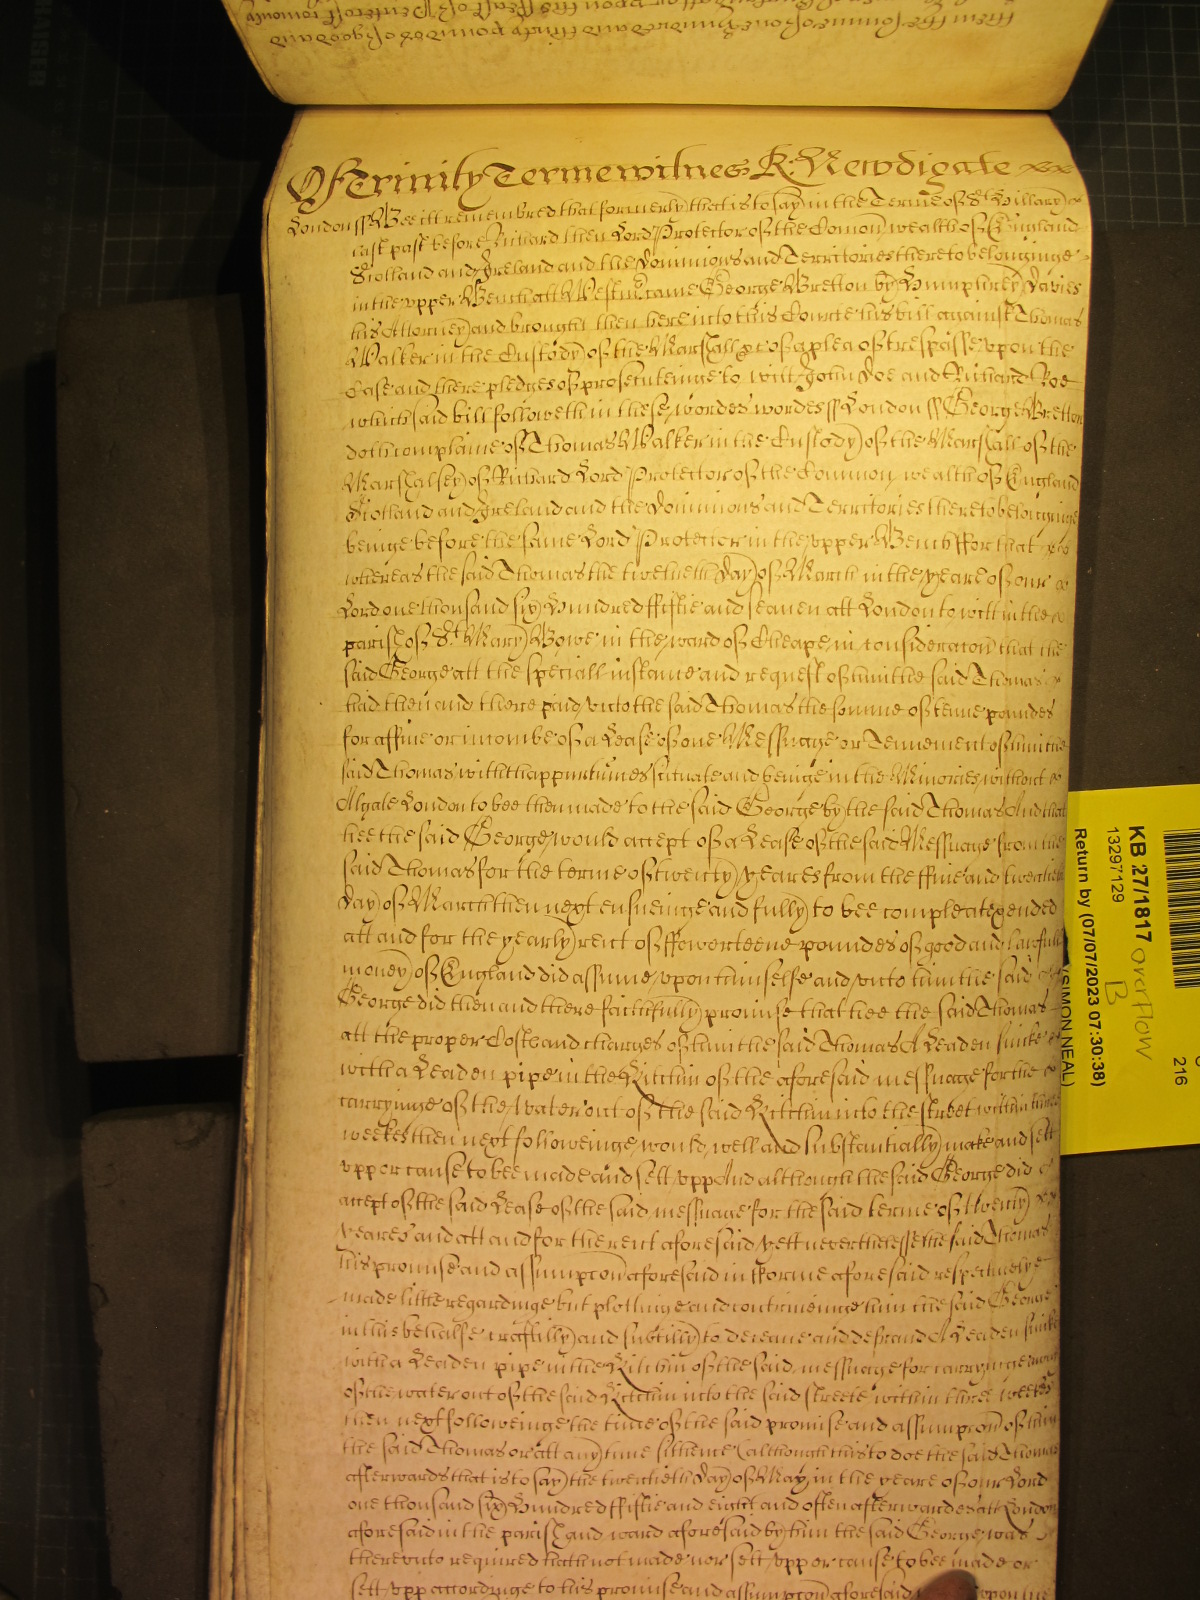 Of Trinity Terme witnes R: Newdigate
London ss Bee itt remembred that formerly that is to say in the Terme of St Hillary
last past before Richard then Lord Protector of the Comon wealth of England
Scotland and Ireland and the Dominions and Territories thereto belonginge
in the vpper Bench att Westm came George Bretton by Humphrey Davies
his Attorney and brought then here into this Courte his bill against Thomas
Walker in the Custody of the Marshall &c of a plea of trespasse vpon the
Case and there pledges of prosecuteinge to witt John Doe and Richard Roe
which said bill followeth in these wordes wordes ss London ss George Bretton
doth complaine of Thomas Walker in the Custody of the Marshall of the
Marshalsey of Richard Lord Protector of the Common wealth of England
Scotland and Ireland and the Dominions and Territories thereto belonginge
beinge before the same Lord Protector in the vpper Bench ffor that
whereas the said Thomas the twetieth day of March in the yeare of our
Lord one thousand six Hundred ffiftie and seaven att London to witt in the
parish of St Mary Bowe in the ward of Cheape in consideracon that the
said George att the speciall instance and request of him the said Thomas
had then and there paid vnto the said Thomas the somme of tenne poundes
for a ffine or incombe of a Lease of one Messuage or Tennement of him the
said Thomas with thappurtunces scituate and beinge in the Minories without
Algate London to bee then made to the said George by the said Thomas And that
hee the said George would accept of a Lease of the said Messuage from the
said Thomas for the terme of twenty yeares from the ffive and twentieth
day of March then next ensueinge and fully to bee compleate & ended
att and for the yearly rent of ffowerteene poundes of good and lawfull
money of England did assume vpon himselfe and vnto him the said
George did then and there faithfully promise that hee the said Thomas
att the proper Costs and charges of him the said Thomas A Leaden sincke
with a Leaden pipe in the Kitchin of the aforesaid messuage for the
carryinge of the Water out of the said Kitchin into the street within three
weekes then next followeinge would well and substantially make and sett
vpp or cause to bee made and sett vpp And although the said George did
accept of the said Lease of the said messuage for the said terme of twenty
yeares and att and for the rent aforesaid yett neverthelesse the said Thomas
his promise and assumpcon aforesaid in fforme aforesaid respectively
made little regardinge but plottinge and contriveinge him the said George
in this behalfe craftily and subtilly to deceave and defraud A Leaden sincke
with a Leaden pipe in the Kitchin of the said messuage for carryinge
of the water out of the said Kitchin into the said streete within three weekes
then next followeinge the time of the said promise and assumpcon of him
the said Thomas or att any time sithence (although this to doe the said Thomas
afterwards that is to say the twentieth day of May in the yeare of our Lord
one thousand six Hundred ffiftie and eight and often afterwardes att London
aforesaid in the parish and ward aforesaid by him the said George was
therevnto required hath not made nor sett vpp or cause to bee made or
sett vpp accordinge to his promise and assumpcon aforesaid vpon the
KB 27/1817 overflow
B
13297129
Return by (07/07/2023 07:30:38)
(SIMON NEAL)
216